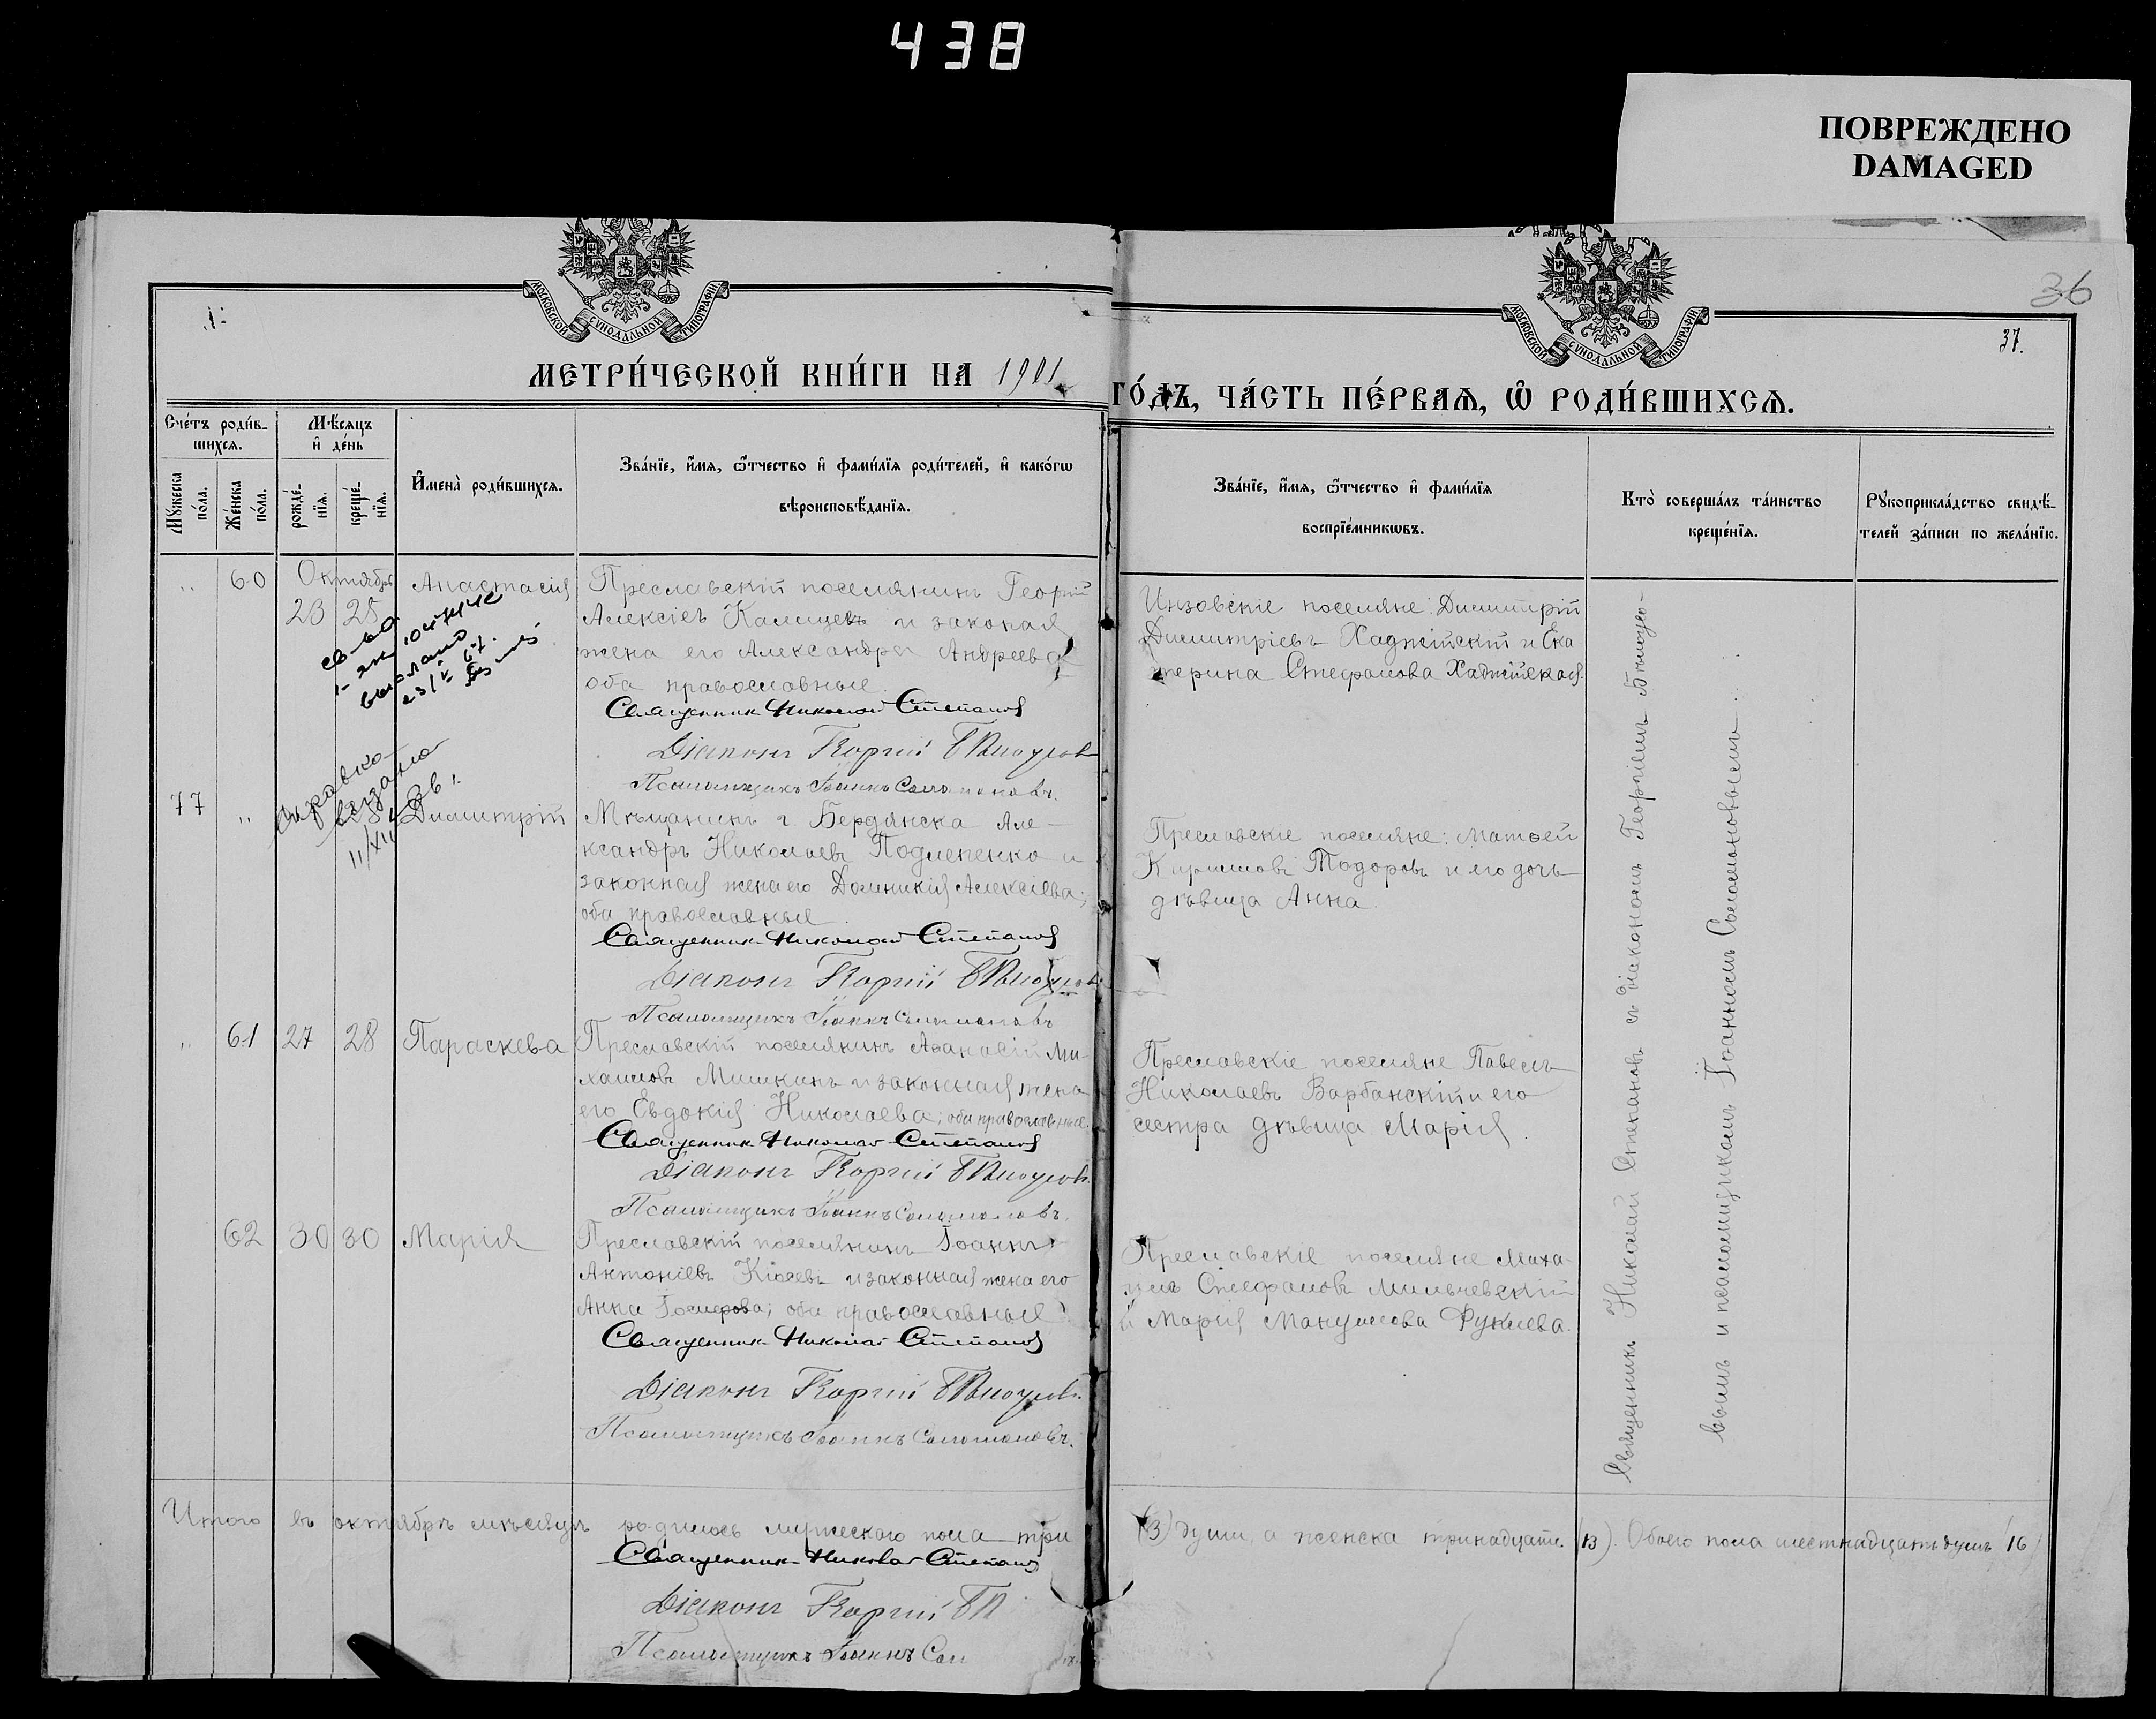 438
ПОВРЕЖДЕНО
DAMAGED
МОСКОВСКОЙ СѴНОДАЛЬНОЙ ТИПОГРАФІИ
МОСКОВСКОЙ СѴНОДАЛЬНОЙ ТИПОГРАФІИ
36
37.
МЕТРИ́ЧЕСКОЙ КНИ́ГИ НА 1901
ГО́ДЪ, ЧА́СТЬ ПЕ́РВАѦ, Ѡ҆ РОДИ́ВШИХСѦ.
Сче́тъ роди́в-
шихсѧ.
Мѣ́сѧцъ
и҆ де́нь
Мꙋ́жеска по́ла.
Же́нска по́ла.
рожде́-
нїѧ.
креще́-
нїѧ.
И҆мена̀ роди́вшихсѧ.
Зва́нїе, и҆́мѧ, ѻ҆́тчество и҆ фами́лїѧ роди́телей, и҆ како́гѡ
вѣроисповѣ́данїѧ.
Зва́нїе, и҆́мѧ, ѻ҆́тчество и҆ фами́лїѧ
воспрїе́мникѡвъ.
Кто̀ соверша́лъ та́инство
креще́нїѧ.
Рꙋкоприкла́дство свидѣ́-
телей за́писи по жела́нїю.
" 60 Октябрь
23 25 Анастасія
Преславскій поселянинъ Георгій
Алексіевъ Калицевъ и законая
жена его Александра Андреева
оба православные.
Священник Николай Степанов
Діаконъ Георгій
Псаломщикъ Іоаннъ Соломоновъ.
Инзовскіе поселяне: Димитрій
Димитріевъ Хаджійскій и Ека
терина Стефанова Хаджійская.
выслано
справка
11/XII
77 " Димитрій
Мѣщанинъ г. Бердянска Але-
ксандръ Николаевъ Подлепенко и
законная жена его Домникія Алексіева;
оба православные.
Священник Николай Степанов
Діаконъ Георгій
Псаломщикъ Іоаннъ Соломоновъ
Преславскіе поселяне: Матѳей
Кирилловъ Тодоровъ и его дочь
дѣвица Анна.
" 61 27 28 Параскева
Преславскій поселянинъ Аѳанасій Ми-
хаиловъ Мишкинъ и законная жена
его Евдокія Николаева; оба православные.
Священник Николай Степанов
Діаконъ Георгій
Псаломщикъ Іоаннъ Соломоновъ.
Преславскіе поселяне Павелъ
Николаевъ Варбанскій и его
сестра дѣвица Марія.
62 30 30 Марія
Преславскій поселянинъ Іоаннъ
Антоніевъ Кіосевъ и законная жена его
Анна Іосифова; оба православные.
Священник Николай Степанов
Діаконъ Георгій
Псаломщикъ Іоаннъ Соломоновъ.
Преславскіе поселяне Миха-
илъ Стефановъ Мильчевскій
и Марія Мануилева Фуклева.
Священникъ Николай Степановъ съ діакономъ Георгіемъ
вымъ и псаломщикомъ Іоанномъ Соломоновымъ.
Итого въ октябрѣ мѣсяцѣ родилось мужескаго пола три (3) души, а женска тринадцать (13). Обоего пола шестнадцать душъ (16)
Священник Николай Степанов
Діаконъ Георгій
Псаломщикъ Іоаннъ Сол